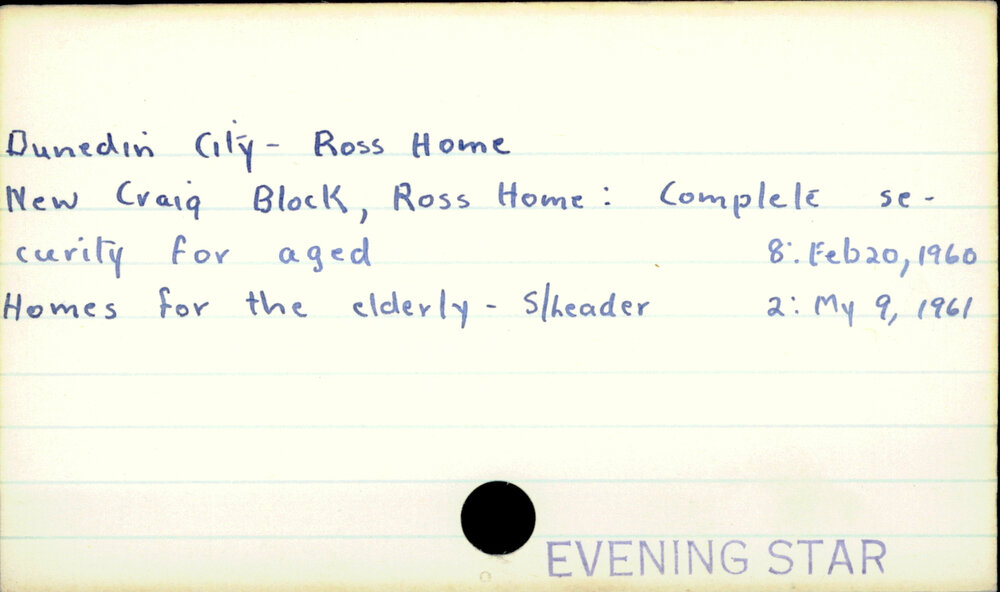 Dunedin City - Ross Home
New Craig Block, Ross Home: Complete se-
curity for aged 8: Feb 20, 1960
Homes for the elderly - S/header 2: My 9, 1961
EVENING STAR